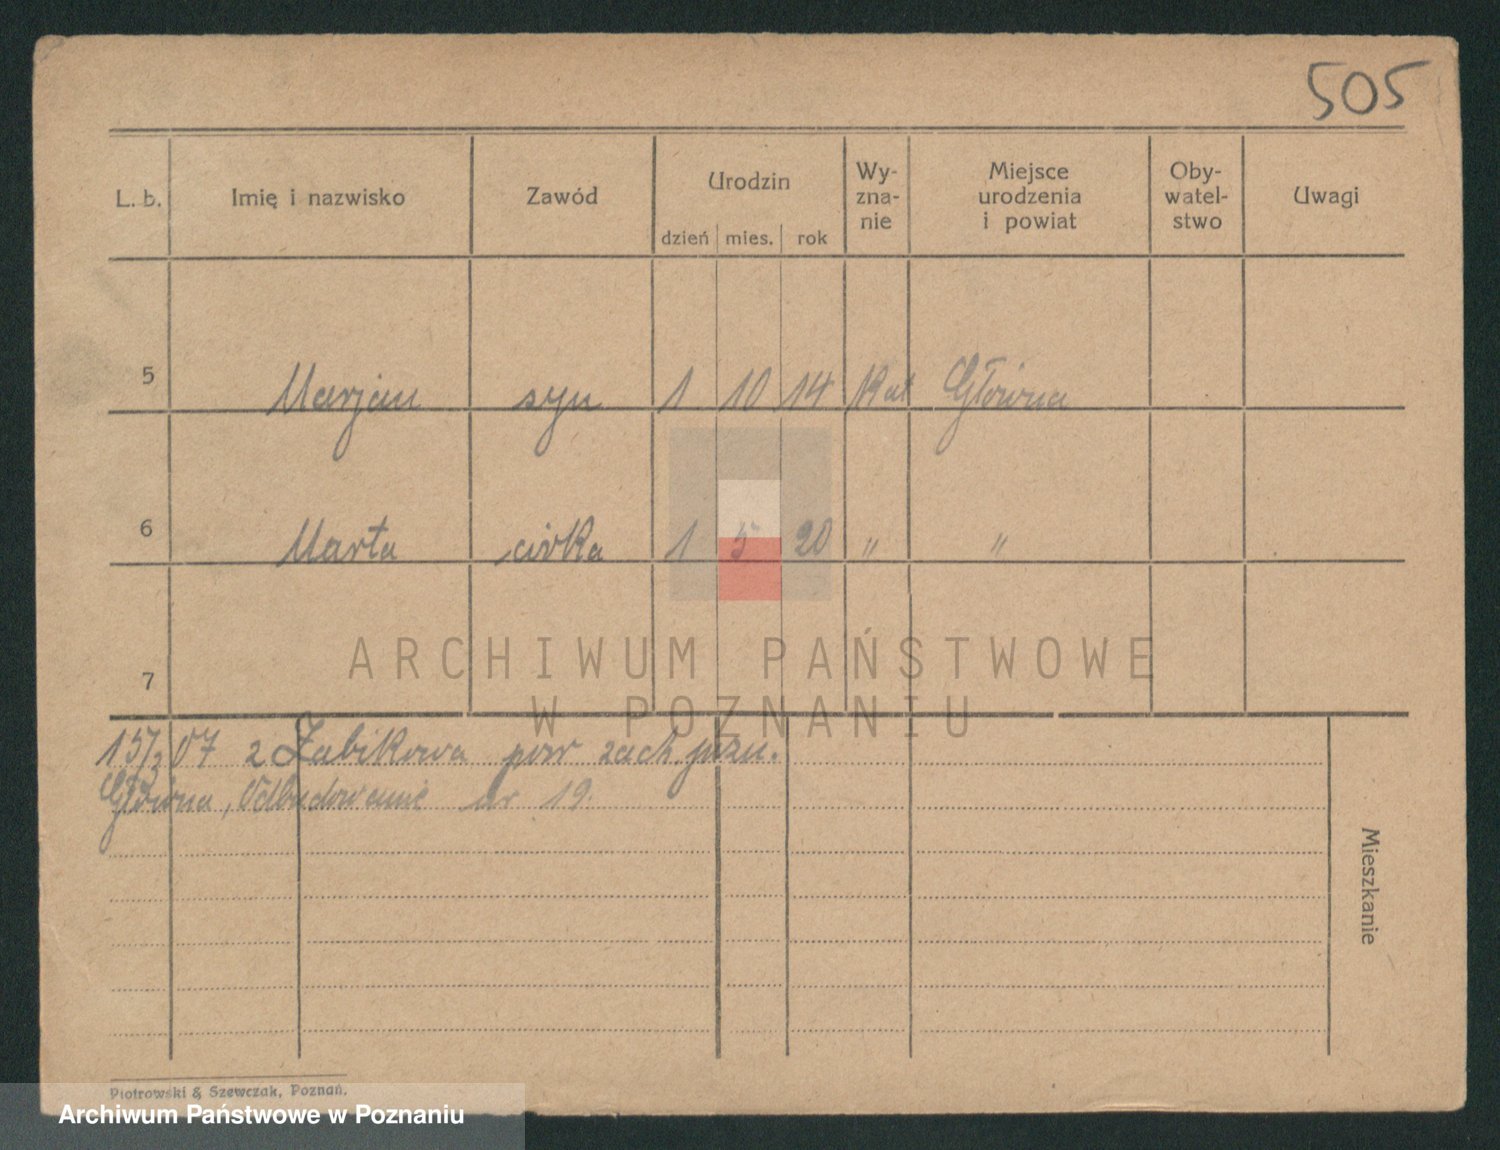 505
L. b. Imię i nazwisko Zawód Urodzin dzień mies. rok Wy-zna-nie Miejsce urodzenia i powiat Oby-watel-stwo Uwagi
5 Marjan syn 1 10 14 Kat Główna
6 Marta córka 1 5 20 " "
7
ARCHIWUM PAŃSTWOWE
W POZNANIU
15/3 07 z Żabikowa pow zach. pozn.
Główna, Odbudowanie nr 19.
Mieszkanie
Piotrowski & Szewczak, Poznań.
Archiwum Państwowe w Poznaniu